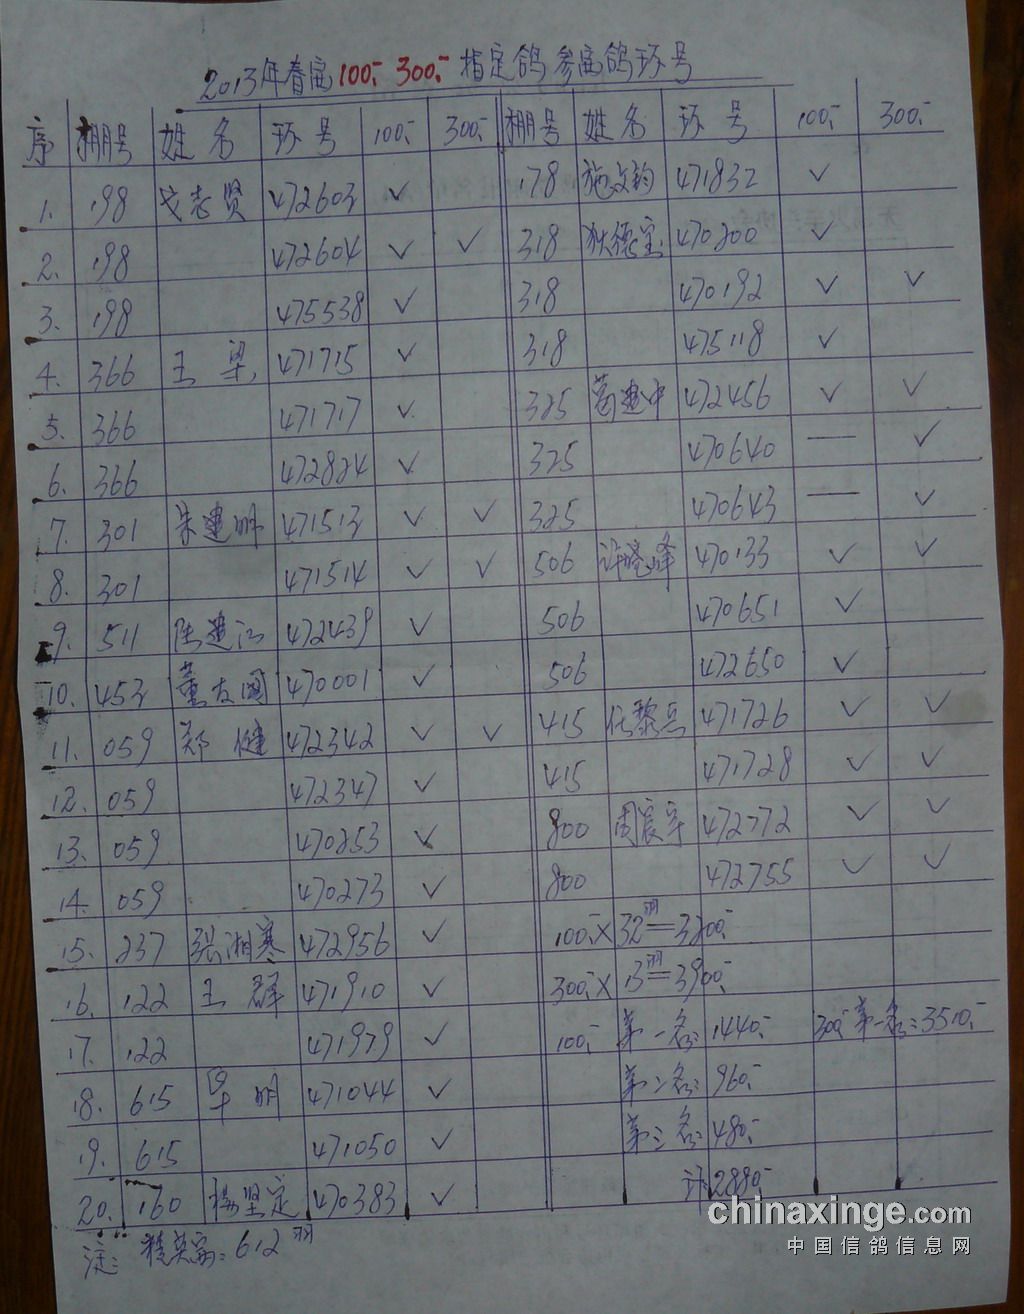 2013年春赛100.- 300.- 指定鸽参赛鸽环号
序 棚号 姓名 环号 100.- 300.- 棚号 姓名 环号 100.- 300.-
1. 198 戈志贤 472603 ✓ 178 施文钧 471832 ✓
2. 198 472604 ✓ ✓ 318 狄德宝 470200 ✓
3. 198 475538 ✓ 318 470192 ✓ ✓
4. 366 王梁 471715 ✓ 318 475118 ✓
5. 366 471717 ✓ 325 葛建中 472456 ✓ ✓
6. 366 472824 ✓ 325 470640 — ✓
7. 301 朱建明 471513 ✓ ✓ 325 470643 — ✓
8. 301 471514 ✓ ✓ 506 许晓峰 470133 ✓ ✓
9. 511 陆建江 472439 ✓ 506 470651 ✓
10. 453 董友国 470001 ✓ 506 472650 ✓
11. 059 郑健 472342 ✓ ✓ 415 任黎兵 471726 ✓ ✓
12. 059 472347 ✓ 415 471728 ✓ ✓
13. 059 470253 ✓ 800 周宸宇 472772 ✓ ✓
14. 059 470273 ✓ 800 472755 ✓ ✓
15. 237 张湘寒 472956 ✓ 100.-×32羽=3200.-
16. 122 王群 471910 ✓ 300.-×13羽=3900.-
17. 122 471979 ✓ 100.- 第一名: 1440.- 300.- 第一名: 3510.-
18. 615 明 471044 ✓ 第二名: 960.-
19. 615 471050 ✓ 第三名: 480.-
20. 160 杨坚定 470383 ✓ 计2880.-
注: 精英赛: 612羽
chinaxinge.com
中国信鸽信息网